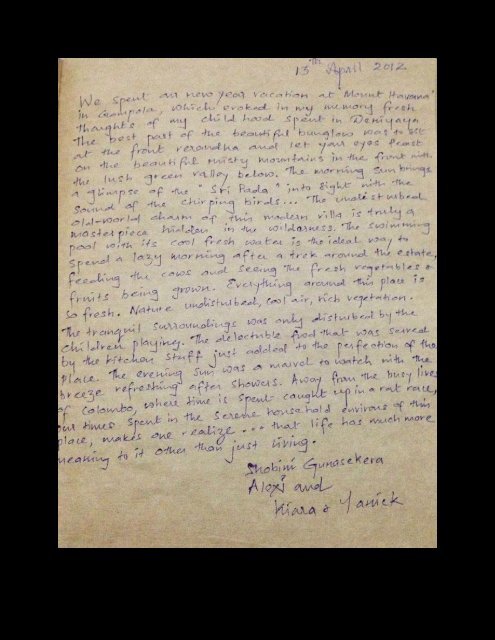 13th April 2012
We spent our new year vacation at "Mount Havana"
in Gampola, which evoked in my memory fresh
thoughts of my child hood spent in Deniyaya.
The best part of the beautiful bunglow was to sit
at the front verandha and let your eyes feast
on the beautiful misty mountains in the front with
the lush green valley below. The morning sun brings
a glimpse of the "Sri Pada" into sight with the
sound of the chirping birds... The undisturbed
old-world charm of this modern villa is truly a
masterpiece hidden in the wilderness. The swimming
pool with its cool fresh water is the ideal way to
spend a lazy morning after a trek around the estate,
feeding the cows and seeing the fresh vegetables &
fruits being grown. Everything around this place is
so fresh. Nature undisturbed, cool air, rich vegetation.
The tranquil surroundings was only disturbed by the
children playing. The delectable food that was served
by the kitchen staff just added to the perfection of the
place. The evening sun was a marvel to watch with the
breeze refreshing after showers. Away from the busy lives
of Colombo, where time is spent caught up in a rat race,
our times spent in the serene household environs of this
place, makes one realize... that life has much more
meaning to it other than just living.
Shobini Gunasekera
Alexi and
Kiara & Yanick